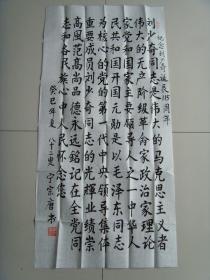 纪念刘少奇诞辰115周年
刘少奇同志是伟大的马克思主义者
伟大的无产阶级革命家政治家理论
家党和国家主要领导人之一中华人
民共和国开国元勋是以毛泽东同志
为核心的党的第一代中央领导集体
重要成员刘少奇同志的光辉业绩崇
高风范高尚品德永远铭记在全党同
志和各民族心中人民怀念您
癸巳年夏 八十二叟 宁宗唐书